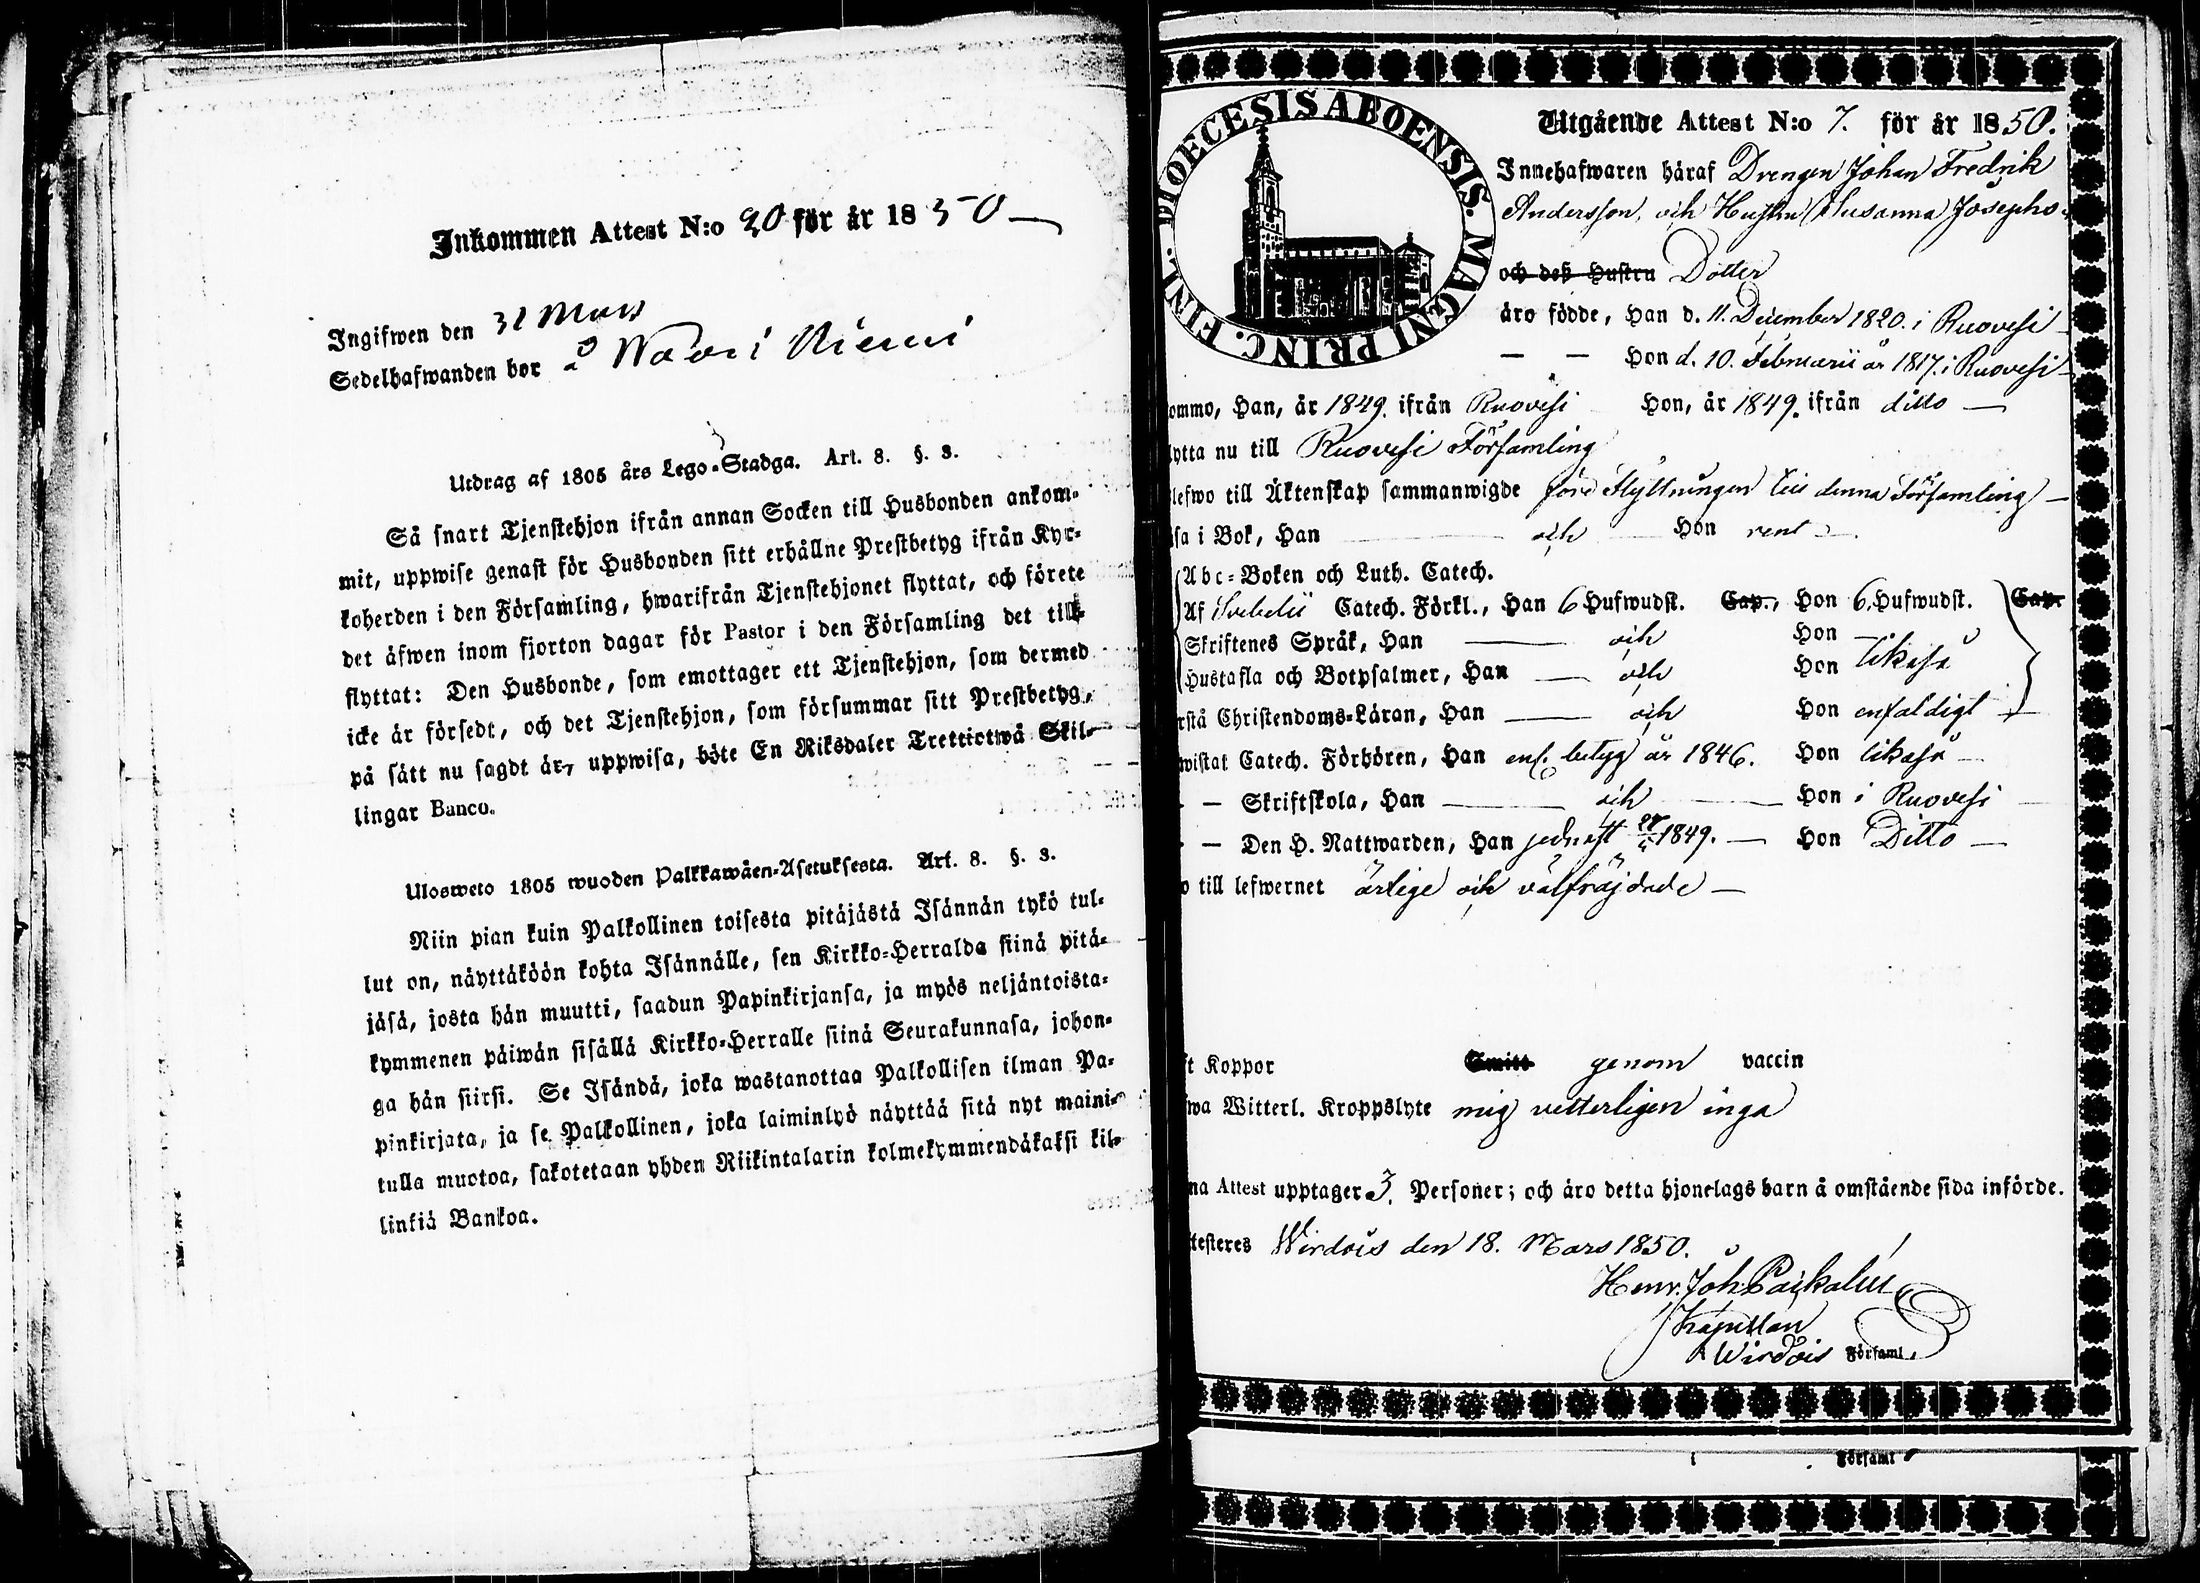 Inkommen Attest N:o 20 för år 1850
Ingifwen den 31 Mars
Sedelhafwanden bor å Waari Niemi
Utdrag af 1805 års Lego-Stadga. Art. 8. §. 3.
Så snart Tjenstehjon ifrån annan Socken till Husbonden ankom-
mit, uppwise genast för Husbonden sitt erhållne Prestbetyg ifrån Kyr-
koherden i den Församling, hwarifrån Tjenstehjonet flyttat, och förete
det äfwen inom fjorton dagar för Pastor i den Församling det till-
flyttat: Den Husbonde, som emottager ett Tjenstehjon, som dermed
icke är försedt, och det Tjenstehjon, som försummar sitt Prestbetyg,
på sätt nu sagdt är, uppwisa, böte En Riksdaler Trettiotwå Skil-
lingar Banco.
Ulosweto 1805 wuoden Palkkawäen-Asetuksesta. Art. 8. §. 3.
Niin pian kuin Palkollinen toisesta pitäjästä Isännän tykö tul-
lut on, näyttäköön kohta Isännälle, sen Kirkko-Herralda siinä pitä-
jäsä, josta hän muutti, saadun Papinkirjansa, ja myös neljäntoista-
kymmenen päiwän sisällä Kirkko-Herralle siinä Seurakunnasa, johon-
ga hän siirsi. Se Isändä, joka wastanottaa Palkollisen ilman Pa-
pinkirjata, ja se Palkollinen, joka laiminlyö näyttää sitä nyt maini-
tulla muotoa, sakotetaan yhden Riikintalarin kolmekymmendäkaksi kil-
linkiä Bankoa.
DIOECESIS ABOENSIS. MAGNI PRINC. FINL.
Utgående Attest N:o 7. för år 1850.
Innehafwaren häraf Drengen Johan Fredrik
Andersson, och Hustru Susanna Josephs-
och dess Hustru Dotter
äro födde, Han d. 11. December 1820. i Ruovesi
Hon d. 10. Februarii år 1817. i Ruovesi
ommo, Han, år 1849. ifrån Ruovesi Hon, år 1849. ifrån ditto
lytta nu till Ruovesi Församling
lefwo till Äktenskap sammanwigde före Flyttningen till denna Församling
sa i Bok, Han och Hon rent
Abc-Boken och Luth. Catech.
Af Svebelii Catech. Förkl., Han 6 Hufwudst. Cap., Hon 6. Hufwudst. Cap.
Skriftenes Språk, Han och Hon
Hustafla och Botpsalmer, Han och Hon likaså
rstå Christendoms-Läran, Han och Hon enfaldigt
wistat Catech. Förhören, Han enl. betyg år 1846. Hon likaså
Skriftskola, Han och Hon i Ruovesi
Den H. Nattwarden, Han 1849. Hon Ditto
o till lefwernet ärlige och välfräjdade
t Koppor Smitt genom vaccin
wa Witterl. Kroppslyte mig vetterligen inga
na Attest upptager 3. Personer; och äro detta hjonelags barn å omstående sida införde.
testeres Wirdois den 18. Mars 1850.
Henr. Joh.
Kapellan
Wirdois Församl.
Församl